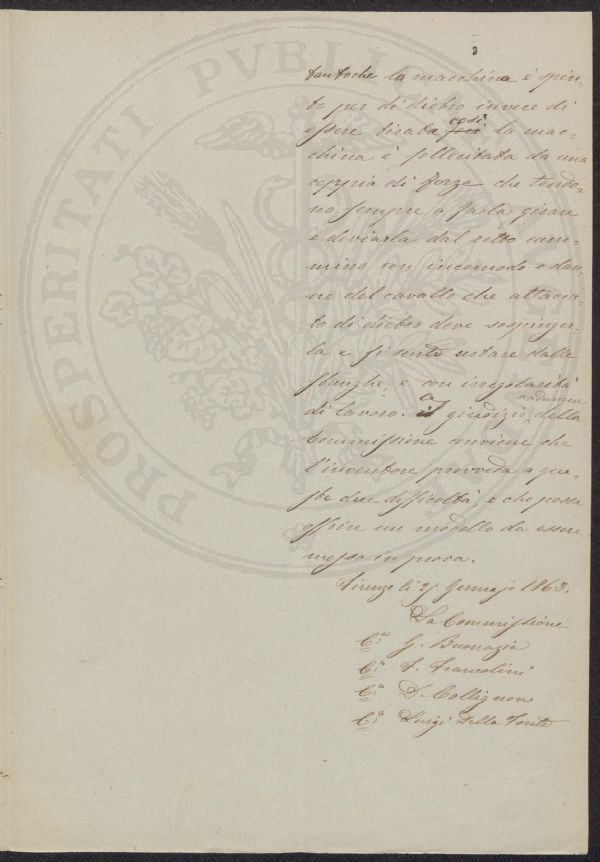 tantoche la macchina è spin-
to per di dietro invece di
essere tirata così la mac-
china è sollecitata da una
coppia di forze che tendo-
no sempre a farla girare
e deviarla dal retto cam-
mino con incomodo e dan-
no del cavallo che attacca-
to di dietro deve sospinger-
la e si sente urtare dalle
stanghe, e con irregolarità
di lavoro. a giudizio adunque della
Commissione conviene che
l'inventore provveda a que-
ste due difficoltà, e che possa
offrire un modello da esser
messo in prova.
Firenze li 27 Gennajo 1863.
La Commissione
C.i G. Buonazia
C.i F. Francolini
C.i D. Collignon
C.i Luigi Della Fonte
PROSPERITATI PVBLIC